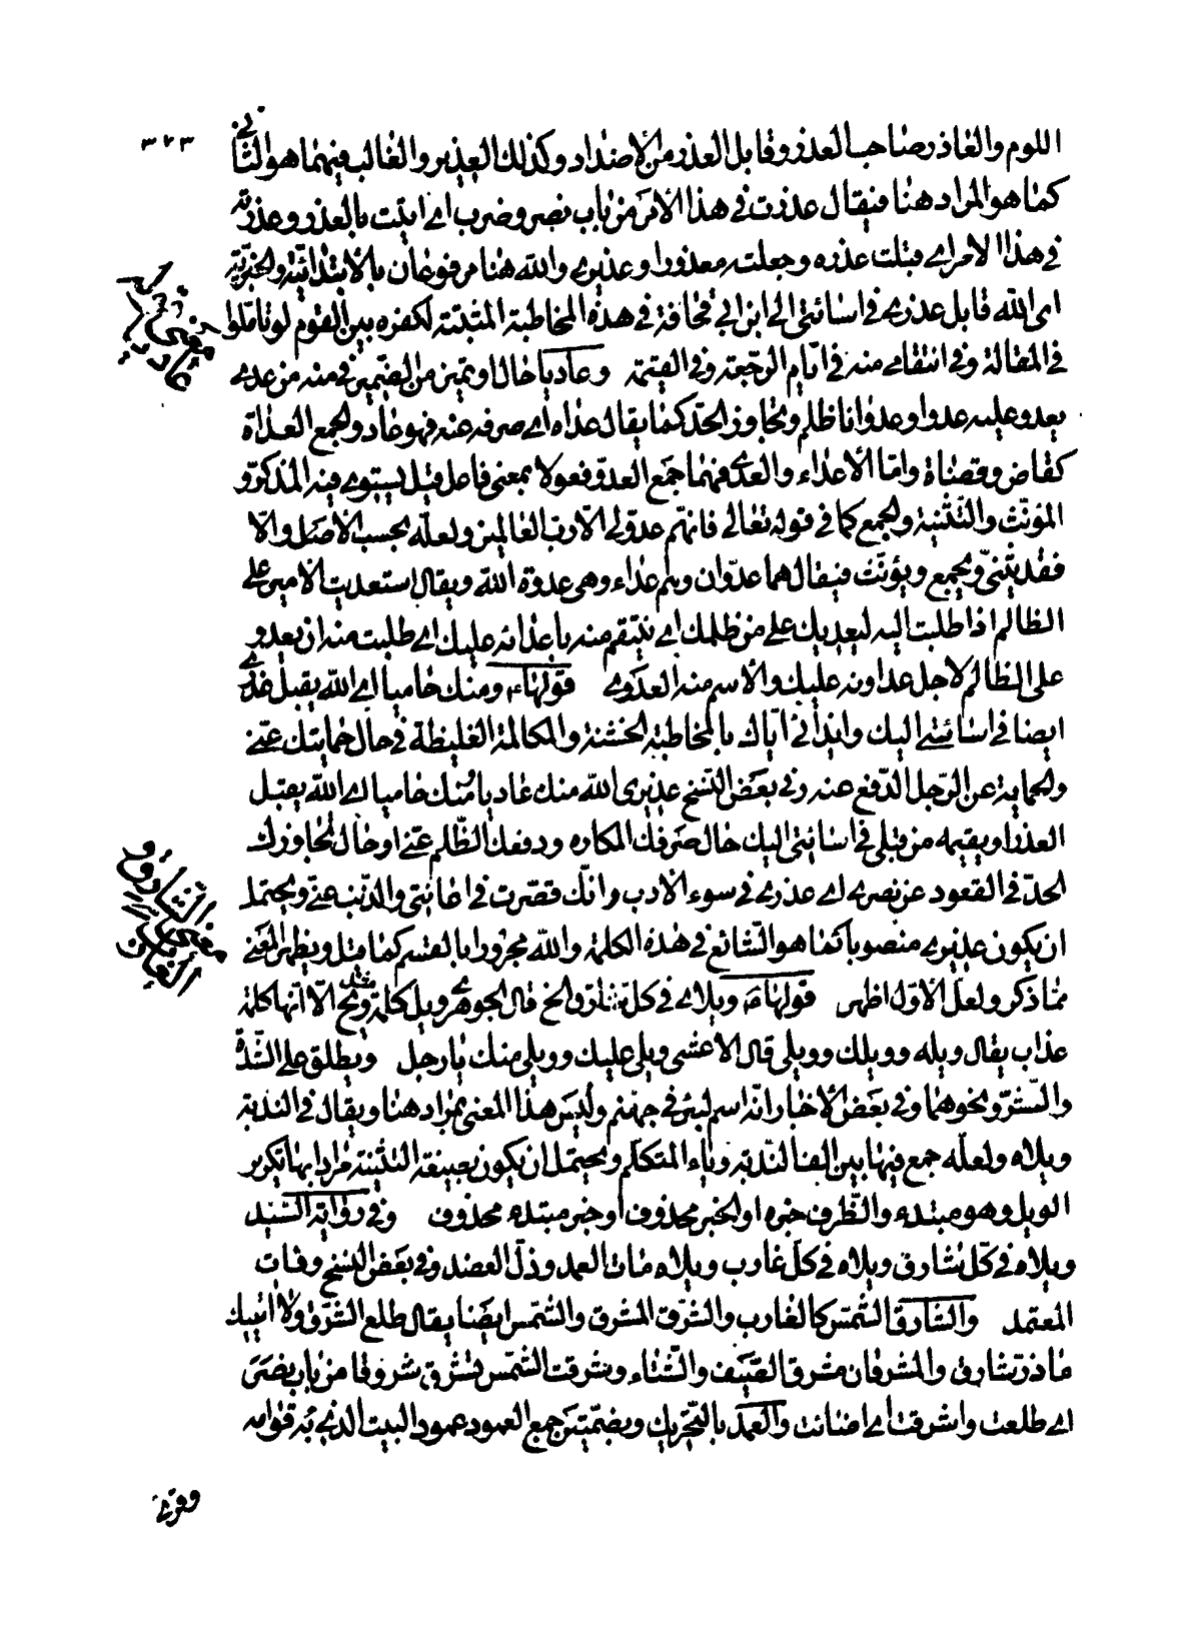 ٣٢٣
اللوم والعاذر صاحب العذر وقابل العذر من الأضداد وكذلك العذير والغالب فيهما هو الثاني
كما هو المراد هنا فيقال عذرت في هذا الأمر من باب نصر وضرب اى اتيت بالعذر وعذرته
في هذا الامر اى قبلت عذره وجعلته معذورا وعذيرى والله هنا مرفوعان بالابتدائية والخبرية
اى الله قابل عذرى في اسائتى الى ابن ابي قحافة في هذه المخاطبة المثبتة لكفره بين القوم لو تاملوا
في المقالة وفي انتقامى منه في ايام الرجعة وفي القيمة وعاديا حال او تميز من الضمير في منه من عدى
يعدو عليه عدوا وعدوانا ظلم وتجاوز الحد كما يقال عداه اى صرفه عنه فهو عاد والجمع العداة
كقاض وقضاة واما الأعداء والعدى فهما جمع العدو فعولا بمعنى فاعل قيل يستوى فيه المذكر و
المونث والتثنية والجمع كما في قوله تعالى فانهم عدو لي الا رب العالمين ولعله بحسب الأصل والا
فقد يثنى ويجمع ويؤنث فيقال هما عدوان وهم عداء وهى عدوة الله ويقال استعديت الامير على
الظالم اذا طلبت اليه ليعديك على من ظلمك اى ينتقم منه باعدائه عليك اى طلبت منه ان يعدو
على الظالم لاجل عداونه عليك والأسم منه العدوى قولها ع ومنك حاميا اى الله يقبل عذرى
ايضا في اسائتى اليك وايذائى اياك بالمخاطبة الخشنة والمكالمة الغليظة في حال حمايتك عنى
والحماية عن الرجل الدفع عنه وفي بعض النسخ عذيرى الله منك عاديا ومنك حاميا اى الله يقبل
العذر او يقيمه من قبلى في اسائتى اليك حال صرفك المكاره ودفعك الظلم عنى او حال تجاوزك
الحد في القعود عن نصرى اى عذرى في سوء الادب وانك قصرت في اعانتى والذب عنى ويحتمل
ان يكون عذيرى منصوبا كما هو الشائع في هذه الكلمة والله مجرورا بالقسم كما قيل ويظهر المعنى
مما ذكر ولعل الاول اظهر قولها ع ويلاى في كل شارق الخ قال الجوهرى ويل كلمة مثل ويح الا انها كلمة
عذاب يقال ويله وويلك وويلى قال الاعشى ويلى عليك وويلى منك يا رجل ويطلق على الشدة
والشر ونحوهما وفي بعض الأخبار انه اسم لبئر في جهنم وليس هذا المعنى بمراد هنا ويقال في الندبة
ويلاه ولعله جمع فيها بين الف الندبة وياء المتكلم ويحتمل ان يكون بصيغة التثنية مرادا بها تكرير
الويل وهو مبتدء والظرف خبره او الخبر محذوف او خبر مبتدء محذوف وفي رواية السيد
ويلاه في كل شارق ويلاه في كل غارب ويلاه مات العمد وذل العضد وفي بعض النسخ وفات
المعتمد والشارق الشمس كالغارب والشرق المشرق والشمس ايضا يقال طلع الشرق ولا اتيك
ما ذر شارق والمشرقان مشرق الصيف والشتاء وشرقت الشمس تشرق شروقا من باب نصر
اى طلعت واشرقت اى اضائت والعمد بالتحريك وبضمتين جمع العمود عمود البيت الذى به قوامه
معنى الشارق